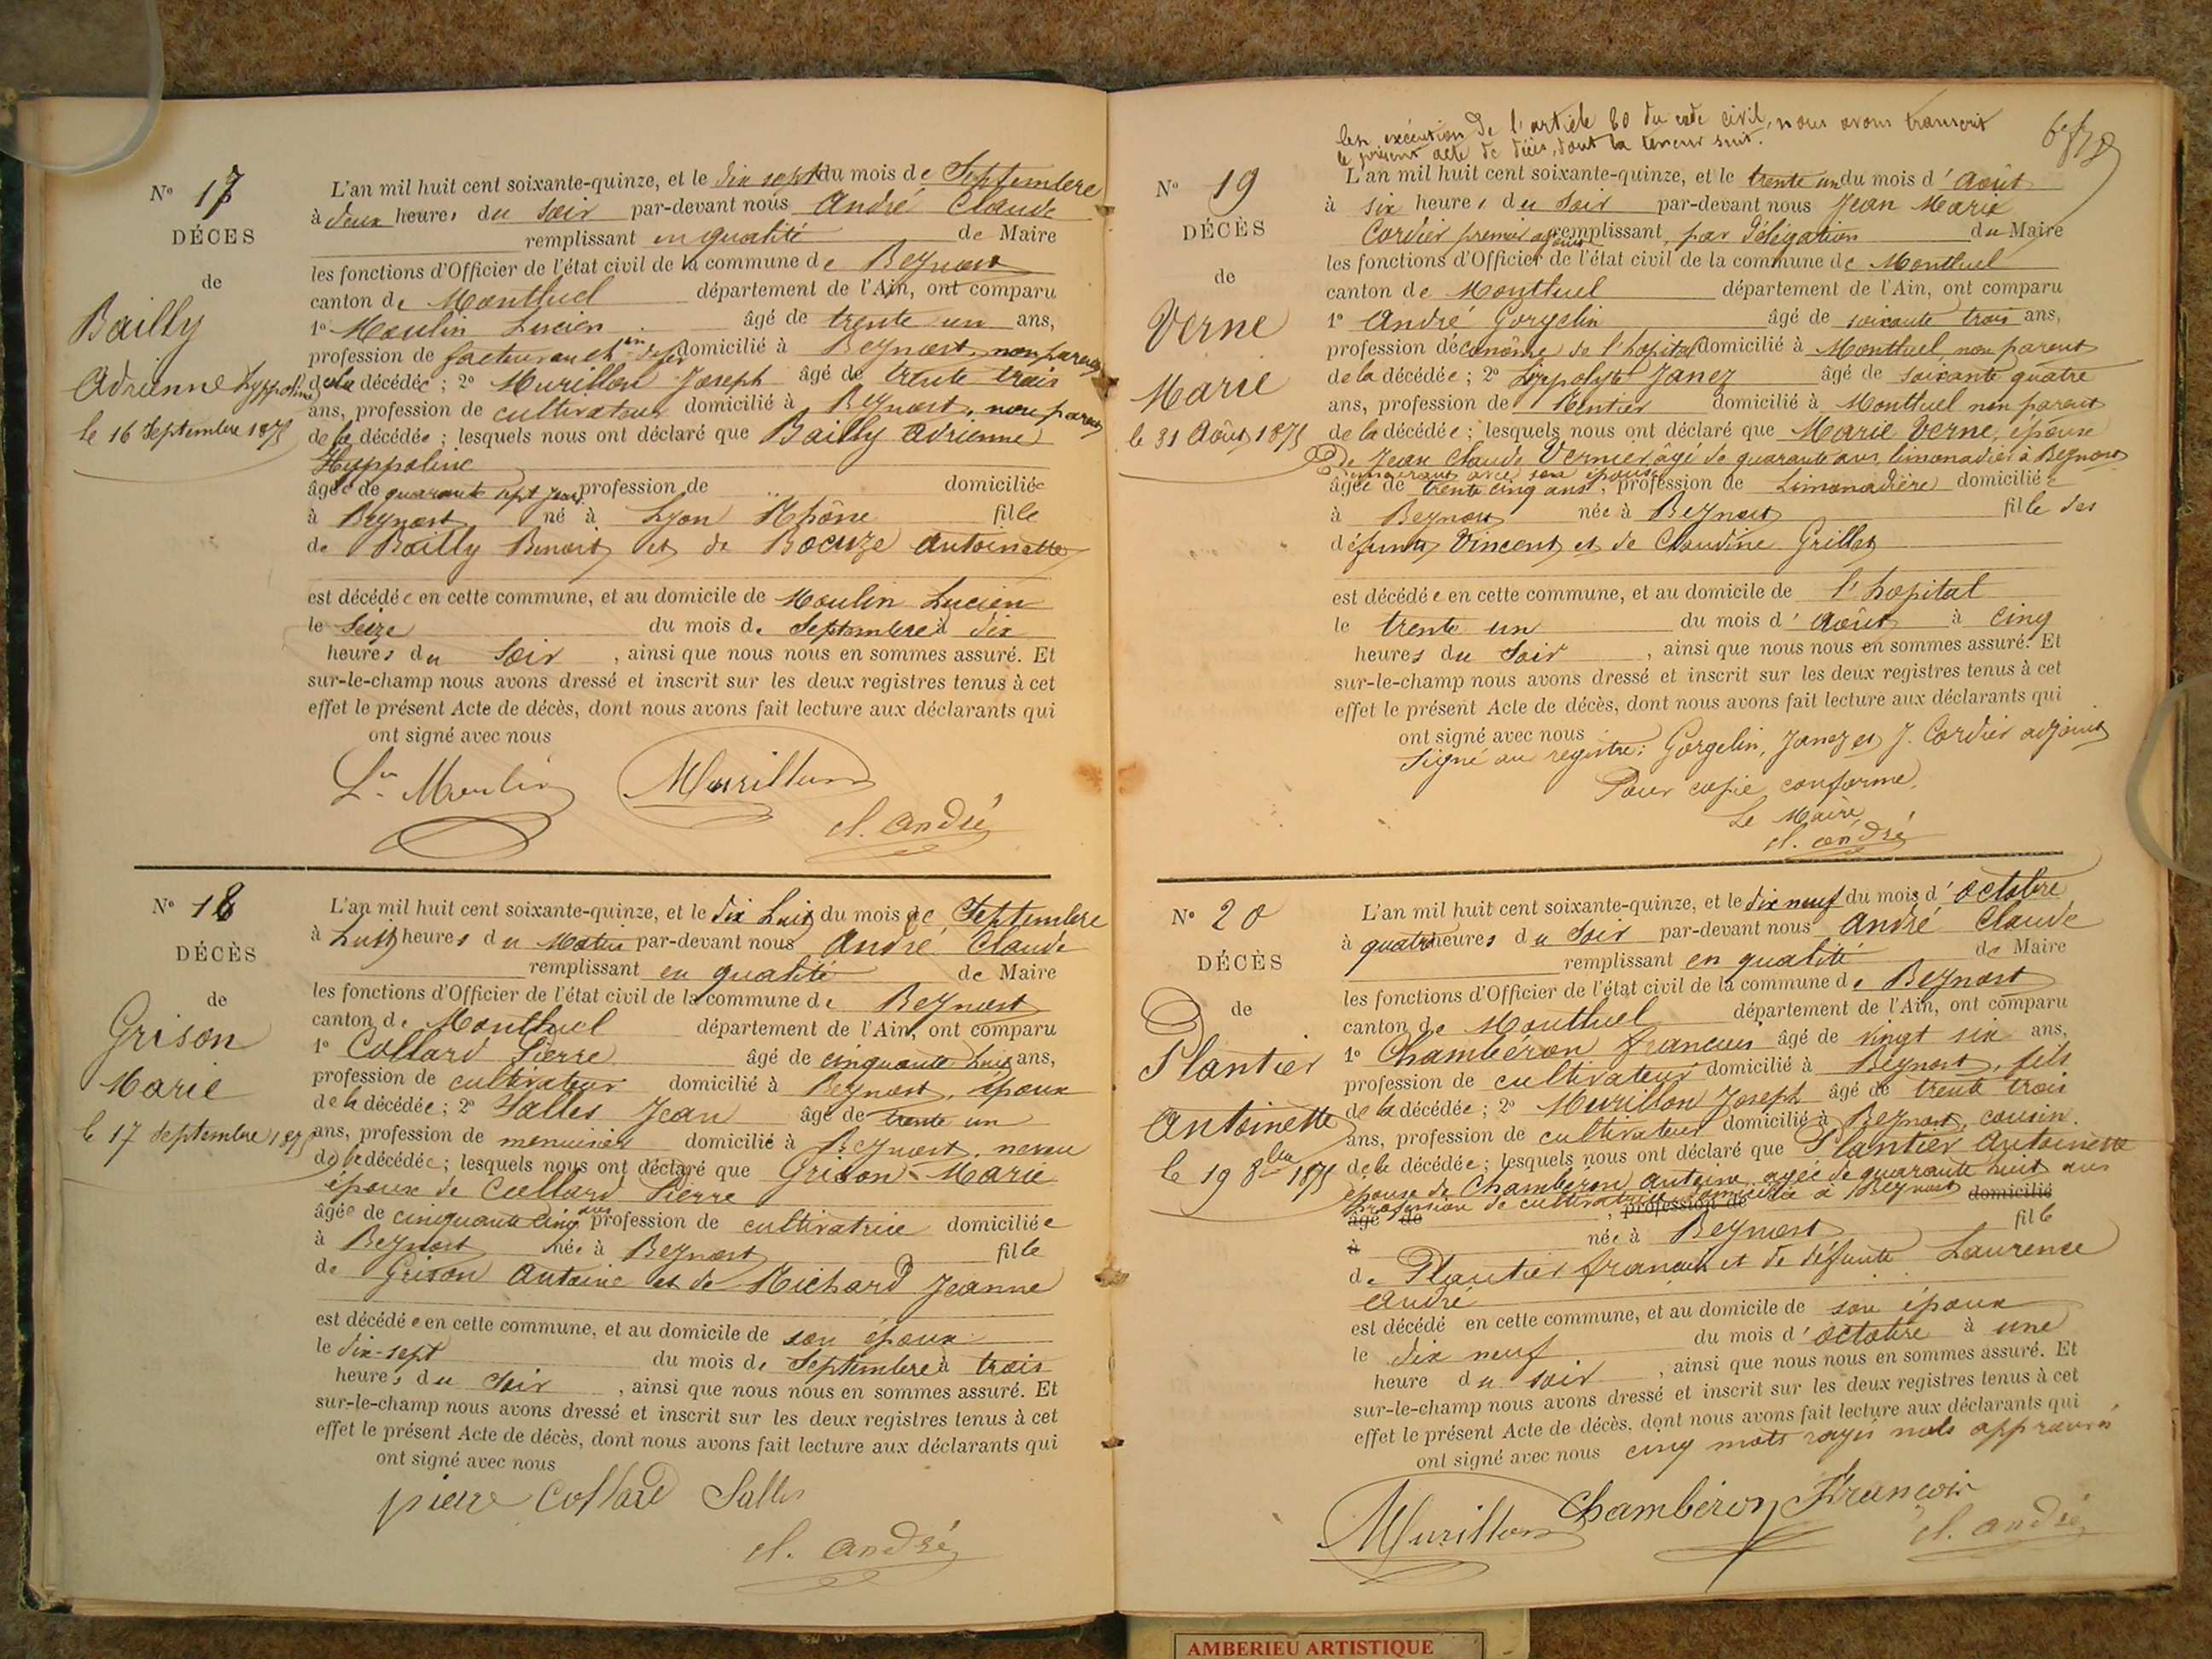 N° 17
DÉCES
de
Bailly
Adrienne Hyppoline
le 16 Septembre 1875
L'an mil huit cent soixante-quinze, et le dix sept du mois de Septembre
à deux heures du soir par-devant nous André Claude
remplissant en qualité de Maire
les fonctions d'Officier de l'état civil de la commune de Beynost
canton de Montluel département de l'Ain, ont comparu
1° Moulin Lucien âgé de trente un ans,
profession de facteur au ch in de fer domicilié à Beynost, non parent
de la décédée ; 2° Murillon Joseph âgé de trente trois
ans, profession de cultivateur domicilié à Beynost, non parent
de la décédée ; lesquels nous ont déclaré que Bailly Adrienne
Hyppoline
âgée de quarante sept ans profession de domiciliée
à Beynost né à Lyon Rhône fille
de Bailly Benoit et de Bocuze Antoinette
est décédée en cette commune, et au domicile de Moulin Lucien
le Seize du mois de Septembre à dix
heures du Soir , ainsi que nous nous en sommes assuré. Et
sur-le-champ nous avons dressé et inscrit sur les deux registres tenus à cet
effet le présent Acte de décès, dont nous avons fait lecture aux déclarants qui
ont signé avec nous
Ln Moulin Murillon
cl. andré
N° 18
DÉCÈS
de
Grison
Marie
le 17 Septembre 1875
L'an mil huit cent soixante-quinze, et le dix huit du mois de Septembre
à huit heures du Matin par-devant nous André Claude
remplissant en qualité de Maire
les fonctions d'Officier de l'état civil de la commune de Beynost
canton de Montluel département de l'Ain, ont comparu
1° Collard Pierre âgé de cinquante huit ans,
profession de cultivateur domicilié à Beynost, époux
de la décédée ; 2° Salles Jean âgé de trente un
ans, profession de menuisier domicilié à Beynost, neveu
de la décédée ; lesquels nous ont déclaré que Grison Marie
épouse de Collard Pierre
âgée de cinquante cinq ans profession de cultivatrice domiciliée
à Beynost née à Beynost fille
de Grison Antoine et de Richard Jeanne
est décédée en cette commune, et au domicile de son époux
le dix-sept du mois de Septembre à trois
heures du Soir , ainsi que nous nous en sommes assuré. Et
sur-le-champ nous avons dressé et inscrit sur les deux registres tenus à cet
effet le présent Acte de décès, dont nous avons fait lecture aux déclarants qui
ont signé avec nous
pierre Collard Salles
cl. andré
en exécution de l'article 80 du code civil, nous avons transcrit
le présent acte de décès, dont la teneur suit.
N° 19
DÉCÈS
de
Verne
Marie
le 31 Août 1875
L'an mil huit cent soixante-quinze, et le trente un du mois d'Août
à six heures du Soir par-devant nous Jean Marie
Cordier premier adjoint remplissant par délégation du Maire
les fonctions d'Officier de l'état civil de la commune de Montluel
canton de Montluel département de l'Ain, ont comparu
1° André Gorgelin âgé de soixante trois ans,
profession d'économe de l'hopital domicilié à Montluel, non parent
de la décédée ; 2° Hippolyte Janez âgé de soixante quatre
ans, profession de Rentier domicilié à Montluel non parent
de la décédée ; lesquels nous ont déclaré que Marie Verne, épouse
de Jean Claude Vernier âgé de quarante ans, limonadier à Beynost
demeurant avec son épouse
âgée de trente cinq ans , profession de Limonadière domiciliée
à Beynost née à Beynost fille des
défunts Vincent et de Claudine Grillet
est décédée en cette commune, et au domicile de l'hopital
le trente un du mois d'Août à cinq
heures du Soir , ainsi que nous nous en sommes assuré. Et
sur-le-champ nous avons dressé et inscrit sur les deux registres tenus à cet
effet le présent Acte de décès, dont nous avons fait lecture aux déclarants qui
ont signé avec nous
Signé au registre : Gorgelin, Janez et J. Cordier adjoint
Pour copie conforme,
Le Maire
cl. andré
N° 20
DÉCÈS
de
Plantier
Antoinette
le 19 8bre 1875
L'an mil huit cent soixante-quinze, et le dix neuf du mois d'octobre
à quatre heures du Soir par-devant nous André Claude
remplissant en qualité de Maire
les fonctions d'Officier de l'état civil de la commune de Beynost
canton de Montluel département de l'Ain, ont comparu
1° Chambéron françois âgé de vingt six ans,
profession de cultivateur domicilié à Beynost, fils
de la décédée ; 2° Murillon Joseph âgé de trente trois
ans, profession de cultivateur domicilié à Beynost, cousin
de la décédée ; lesquels nous ont déclaré que Plantier Antoinette
épouse de Chambéron Antoine, agée de quarante huit ans
profession de cultivatrice domiciliée à Beynost
âgé de , profession de domicilié
à née à Beynost fille
de Plantier françois et de défunte Laurence
André
est décédé en cette commune, et au domicile de son époux
le dix neuf du mois d'octobre à une
heure du soir , ainsi que nous nous en sommes assuré. Et
sur-le-champ nous avons dressé et inscrit sur les deux registres tenus à cet
effet le présent Acte de décès, dont nous avons fait lecture aux déclarants qui
ont signé avec nous cinq mots rayés nuls approuvés
Murillon Chambéron François
cl. andré
AMBERIEU ARTISTIQUE